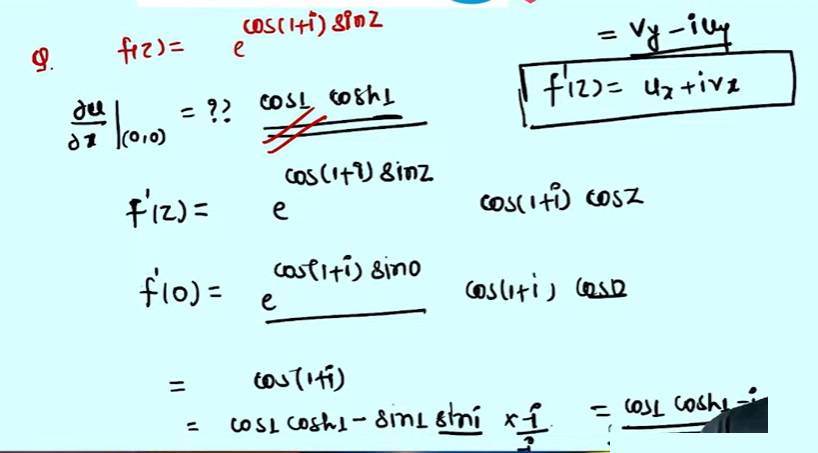 Q. f(z) = e^{cos(1+i) sinz}
= Vy - iuy
f'(z) = ux + ivx
∂u/∂x |(0,0) = ?? cos1 cosh1
f'(z) = e^{cos(1+i) sinz} cos(1+i) cosz
f'(0) = e^{cos(1+i) sin0} cos(1+i) cos0
= cos(1+i)
= cos1 cosh1 - sin1 sini × i/i = cos1 cosh1 - i